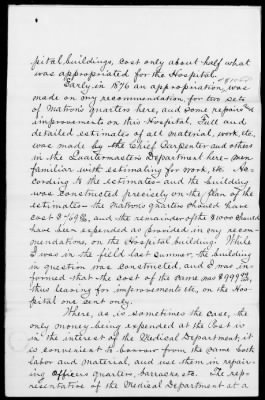 pital buildings, cost only about half what
was appropriated for the Hospital.
Early in 1876 an appropriation, of $1000 was
made on my recommendation, for two sets
of Matron's quarters here, and some repairs &
improvements on this Hospital. Full and
detailed estimates of all material, work, etc.
was made by the Chief Carpenter and others
in the Quartermasters Department here - men
familiar with estimating for work, etc. Ac-
cording to the estimates - and the building
was constructed precisely on the plan of the
estimates - the Matrons quarters should have
cost and the remainder of the $1000 should
have been expended as provided in my recom-
mendations, on the Hospital building. While
I was in the field last summer, the building
in question was constructed, and I was in-
formed that the cost of the same was
thus leaving for improvements etc. on the Hos-
pital one cent only.
Where, as is sometimes the case, the
only money being expended at the Post is
in the interest of the Medical Department, it
is convenient to borrow from the same both
labor and material, and use them in repair-
ing Officers quarters, barracks etc. The rep-
resentative of the Medical Department at a